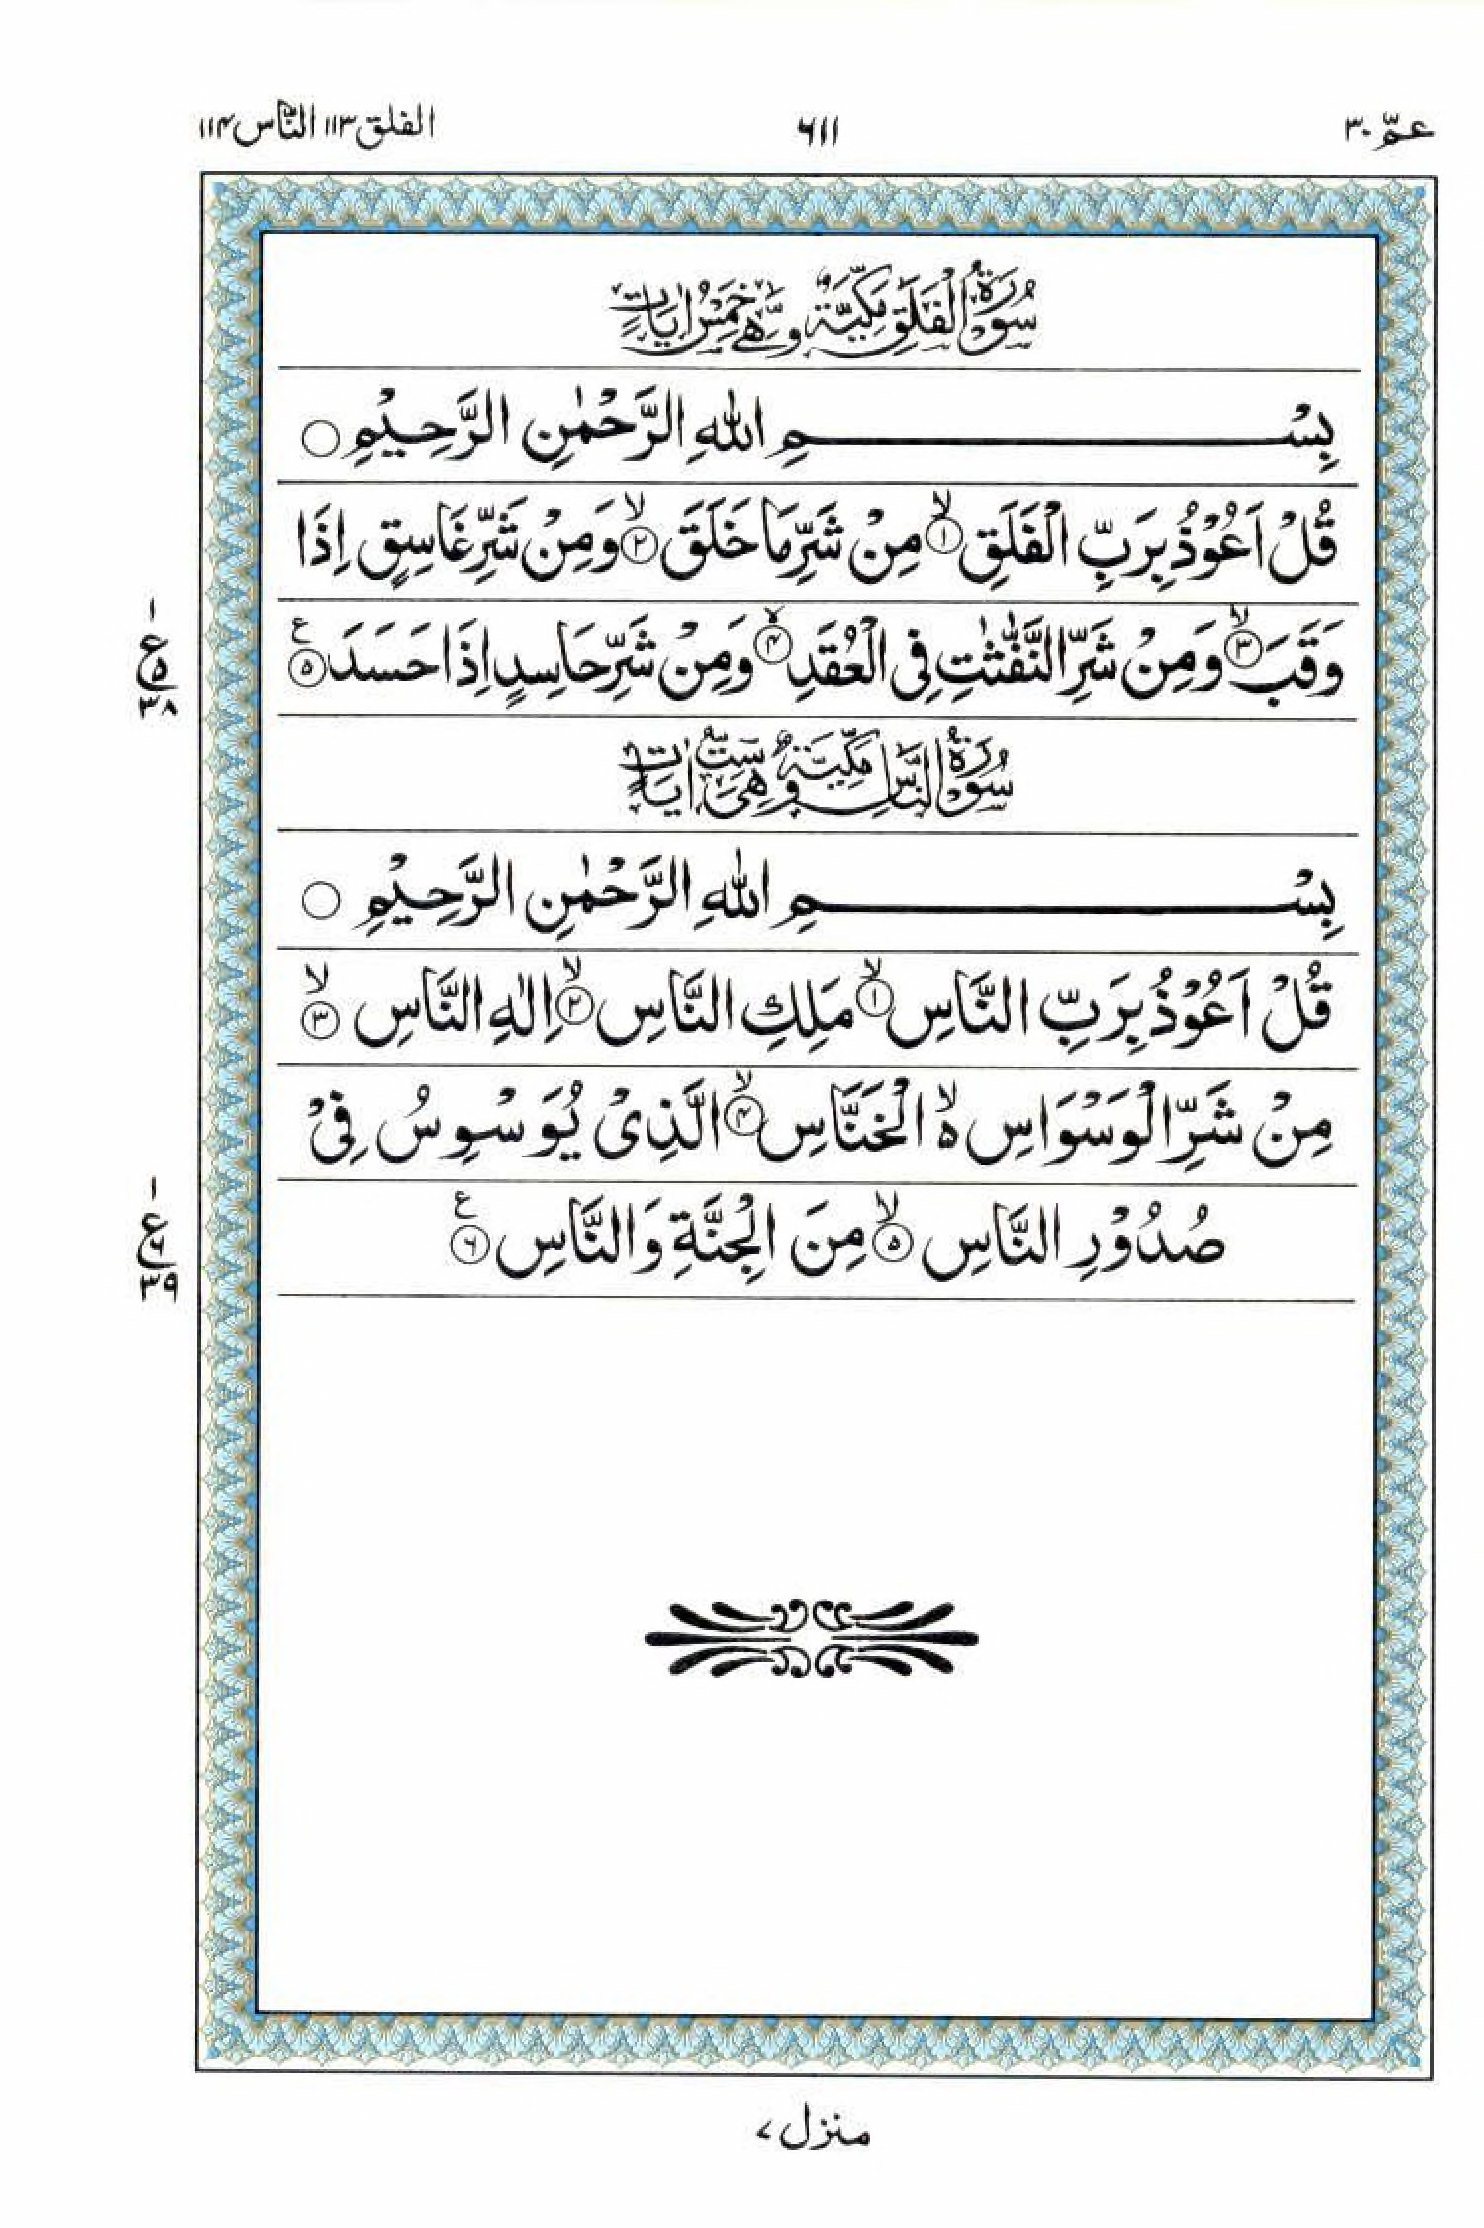 عمّ ٣٠ ٦١١ الفلق ١١٣ الناس ١١٤
سُوْرَةُ الْفَلَقِ مَكِّيَّةٌ وَّهِيَ خَمْسُ اٰيَاتٍ
بِسْمِ اللّٰهِ الرَّحْمٰنِ الرَّحِيْمِ ○
قُلْ اَعُوْذُ بِرَبِّ الْفَلَقِ ۙ﴿۱﴾ مِنْ شَرِّ مَا خَلَقَ ۙ﴿۲﴾ وَمِنْ شَرِّ غَاسِقٍ اِذَا
وَقَبَ ۙ﴿۳﴾ وَمِنْ شَرِّ النَّفّٰثٰتِ فِی الْعُقَدِ ۙ﴿۴﴾ وَمِنْ شَرِّ حَاسِدٍ اِذَا حَسَدَ ﴿۵﴾ ع
١ ع ٥ ٣٨
سُوْرَةُ النَّاسِ مَكِّيَّةٌ وَّهِيَ سِتُّ اٰيَاتٍ
بِسْمِ اللّٰهِ الرَّحْمٰنِ الرَّحِيْمِ ○
قُلْ اَعُوْذُ بِرَبِّ النَّاسِ ۙ﴿۱﴾ مَلِكِ النَّاسِ ۙ﴿۲﴾ اِلٰهِ النَّاسِ ۙ﴿۳﴾
مِنْ شَرِّ الْوَسْوَاسِ ۙ۬ الْخَنَّاسِ ۙ﴿۴﴾ الَّذِیْ يُوَسْوِسُ فِیْ
صُدُوْرِ النَّاسِ ۙ﴿۵﴾ مِنَ الْجِنَّةِ وَالنَّاسِ ﴿۶﴾ ع
١ ع ٦ ٣٩
منزل ٧